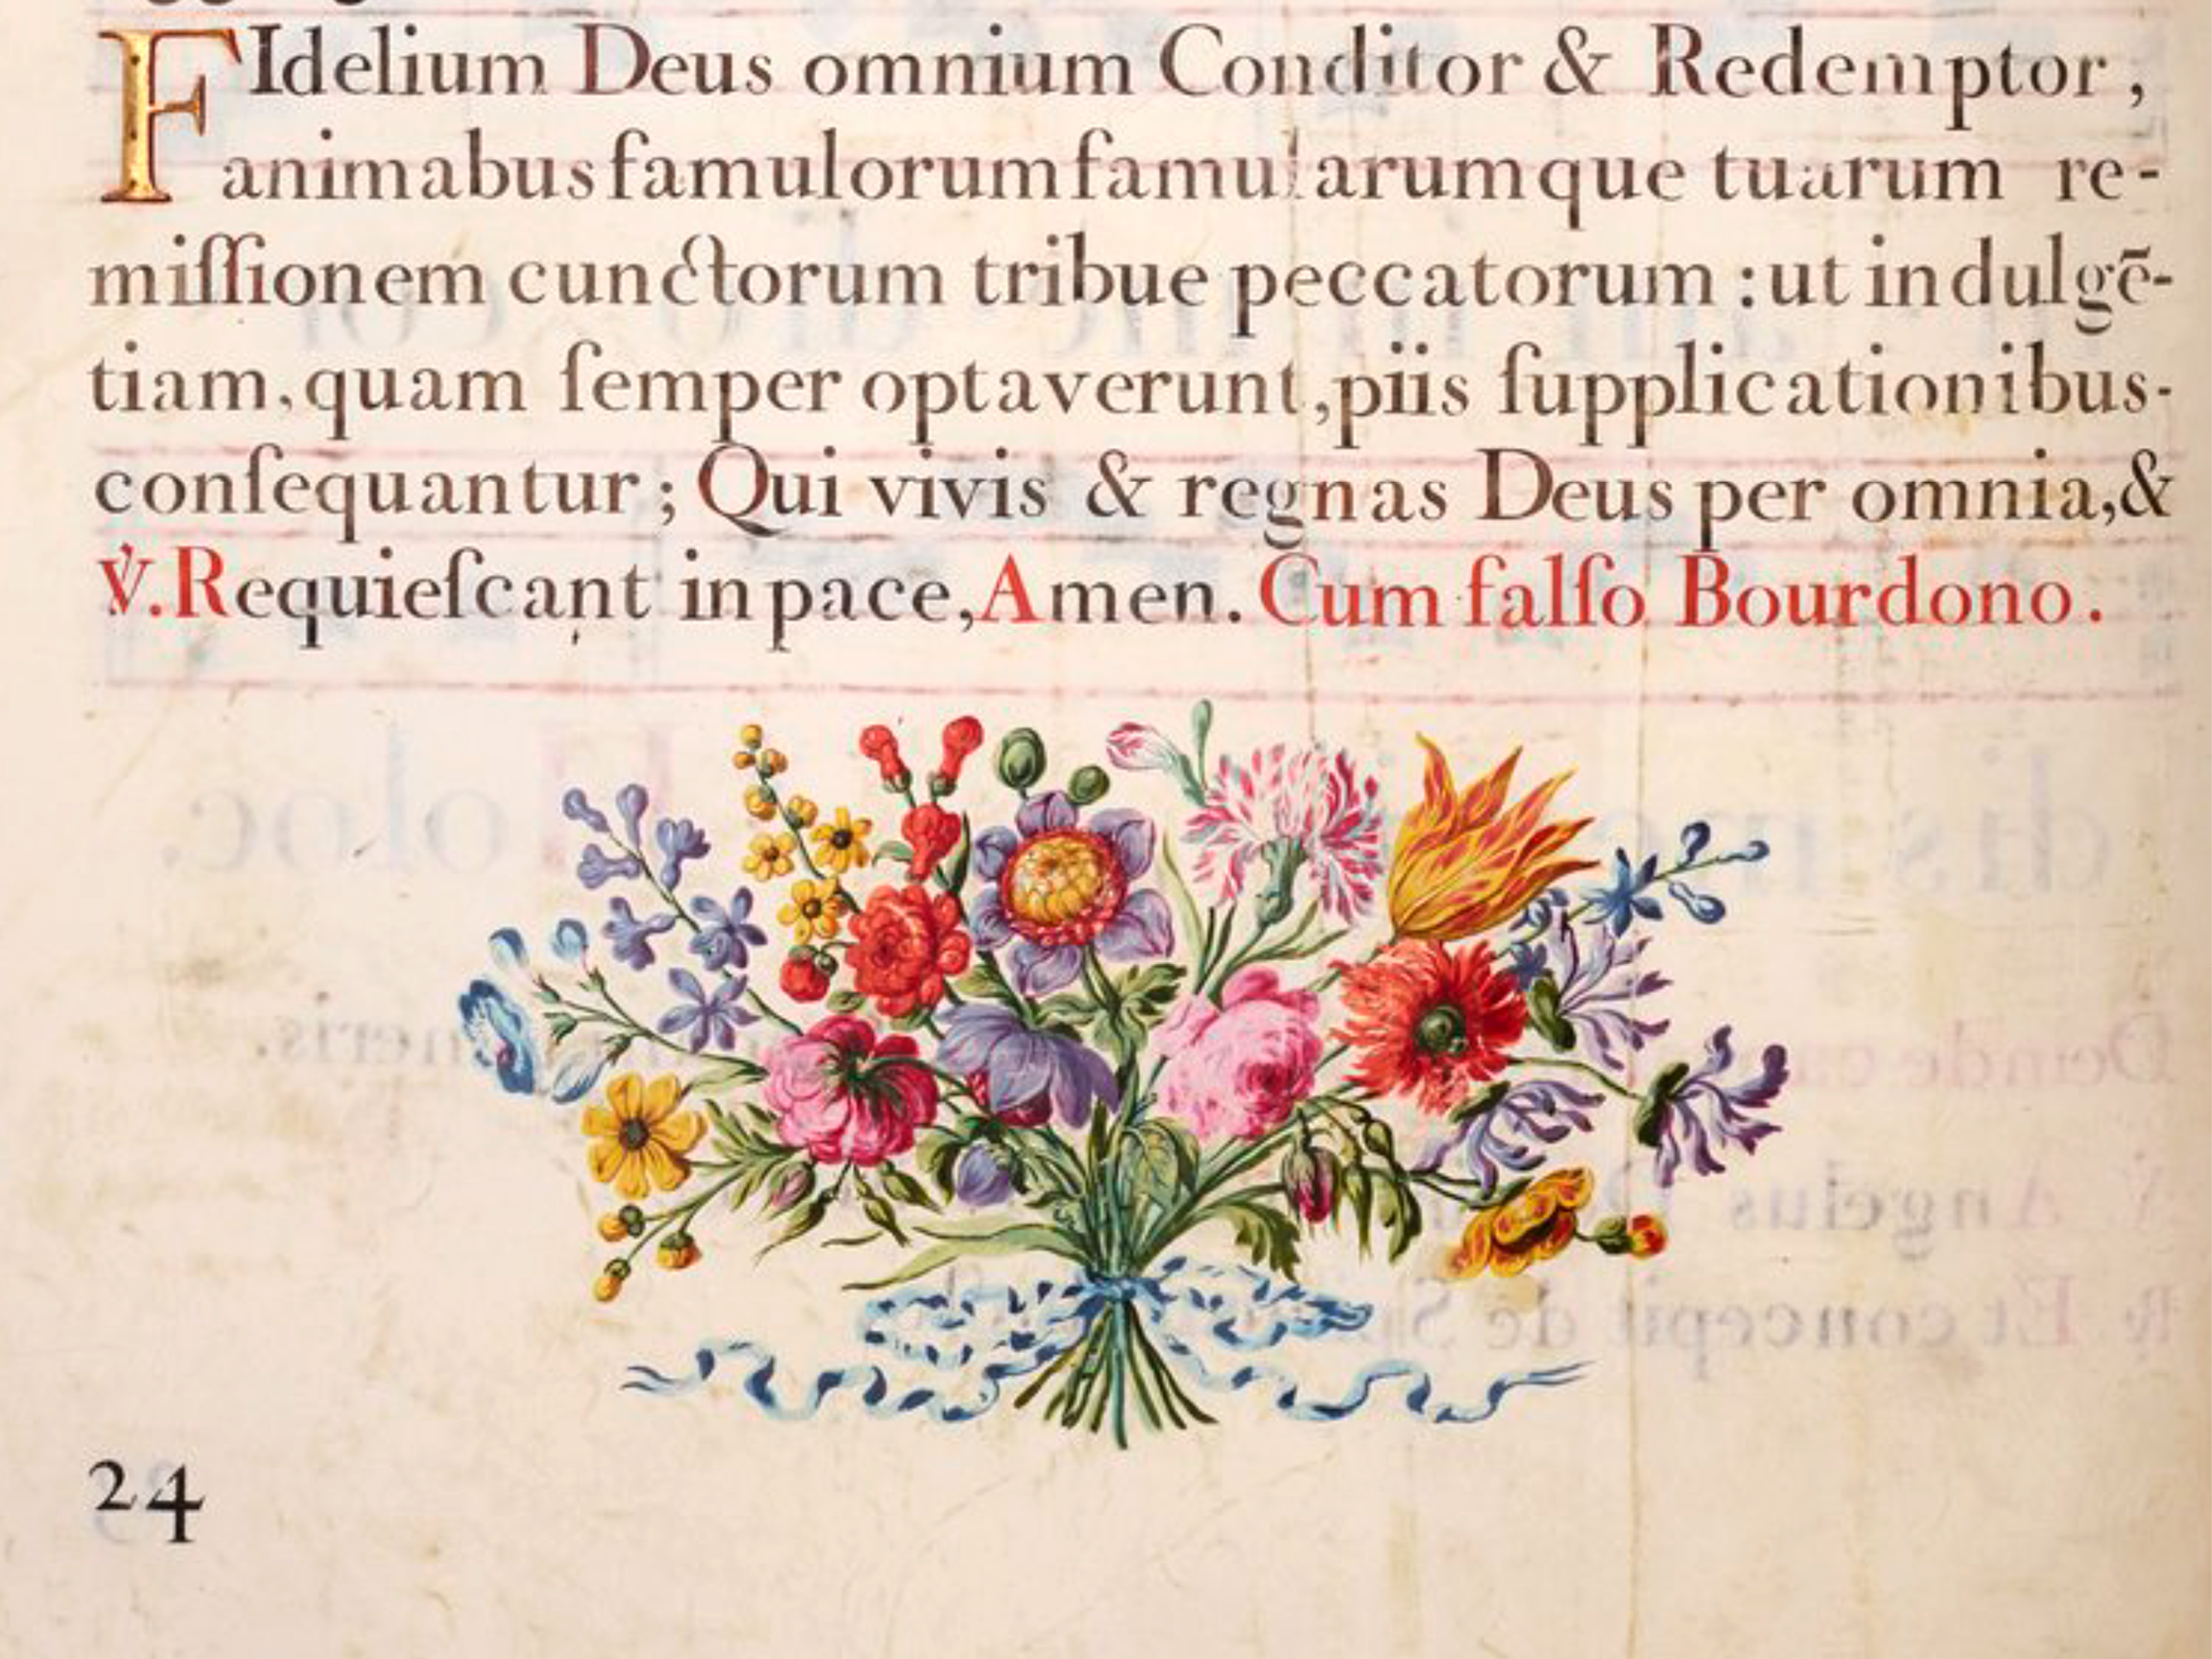 FIdelium Deus omnium Conditor & Redemptor,
animabus famulorum famularumque tuarum re-
miſſionem cunctorum tribue peccatorum : ut indulgē-
tiam, quam ſemper optaverunt, piis ſupplicationibus-
conſequantur; Qui vivis & regnas Deus per omnia, &
℣. Requieſcant in pace, Amen. Cum falſo Bourdono.
24